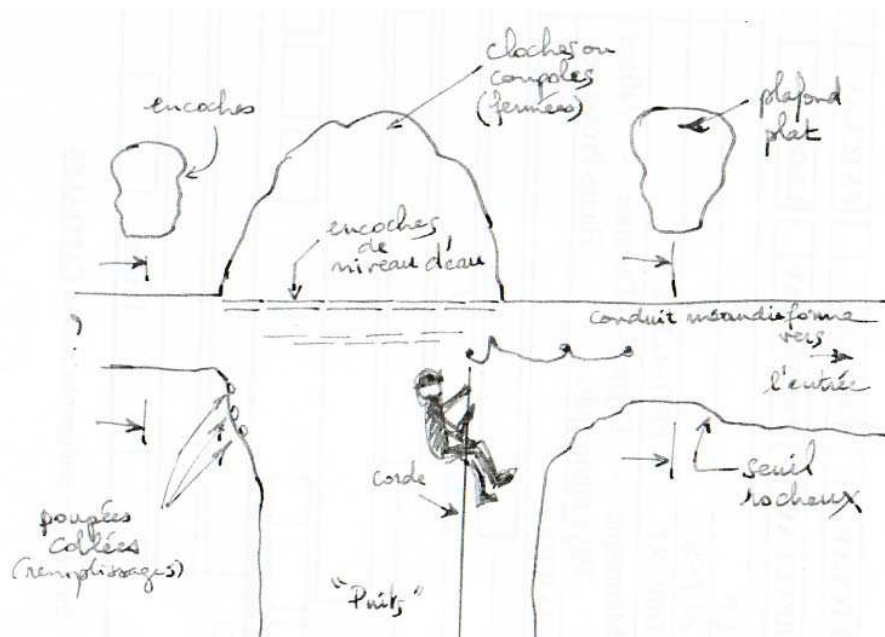 encoches
cloches ou
coupoles
(fermées)
plafond
plat
encoches
de
niveau d'eau
conduit méandriforme
vers
l'entrée
seuil
rocheux
corde
poupées
collées
(remplissages)
"Puits"